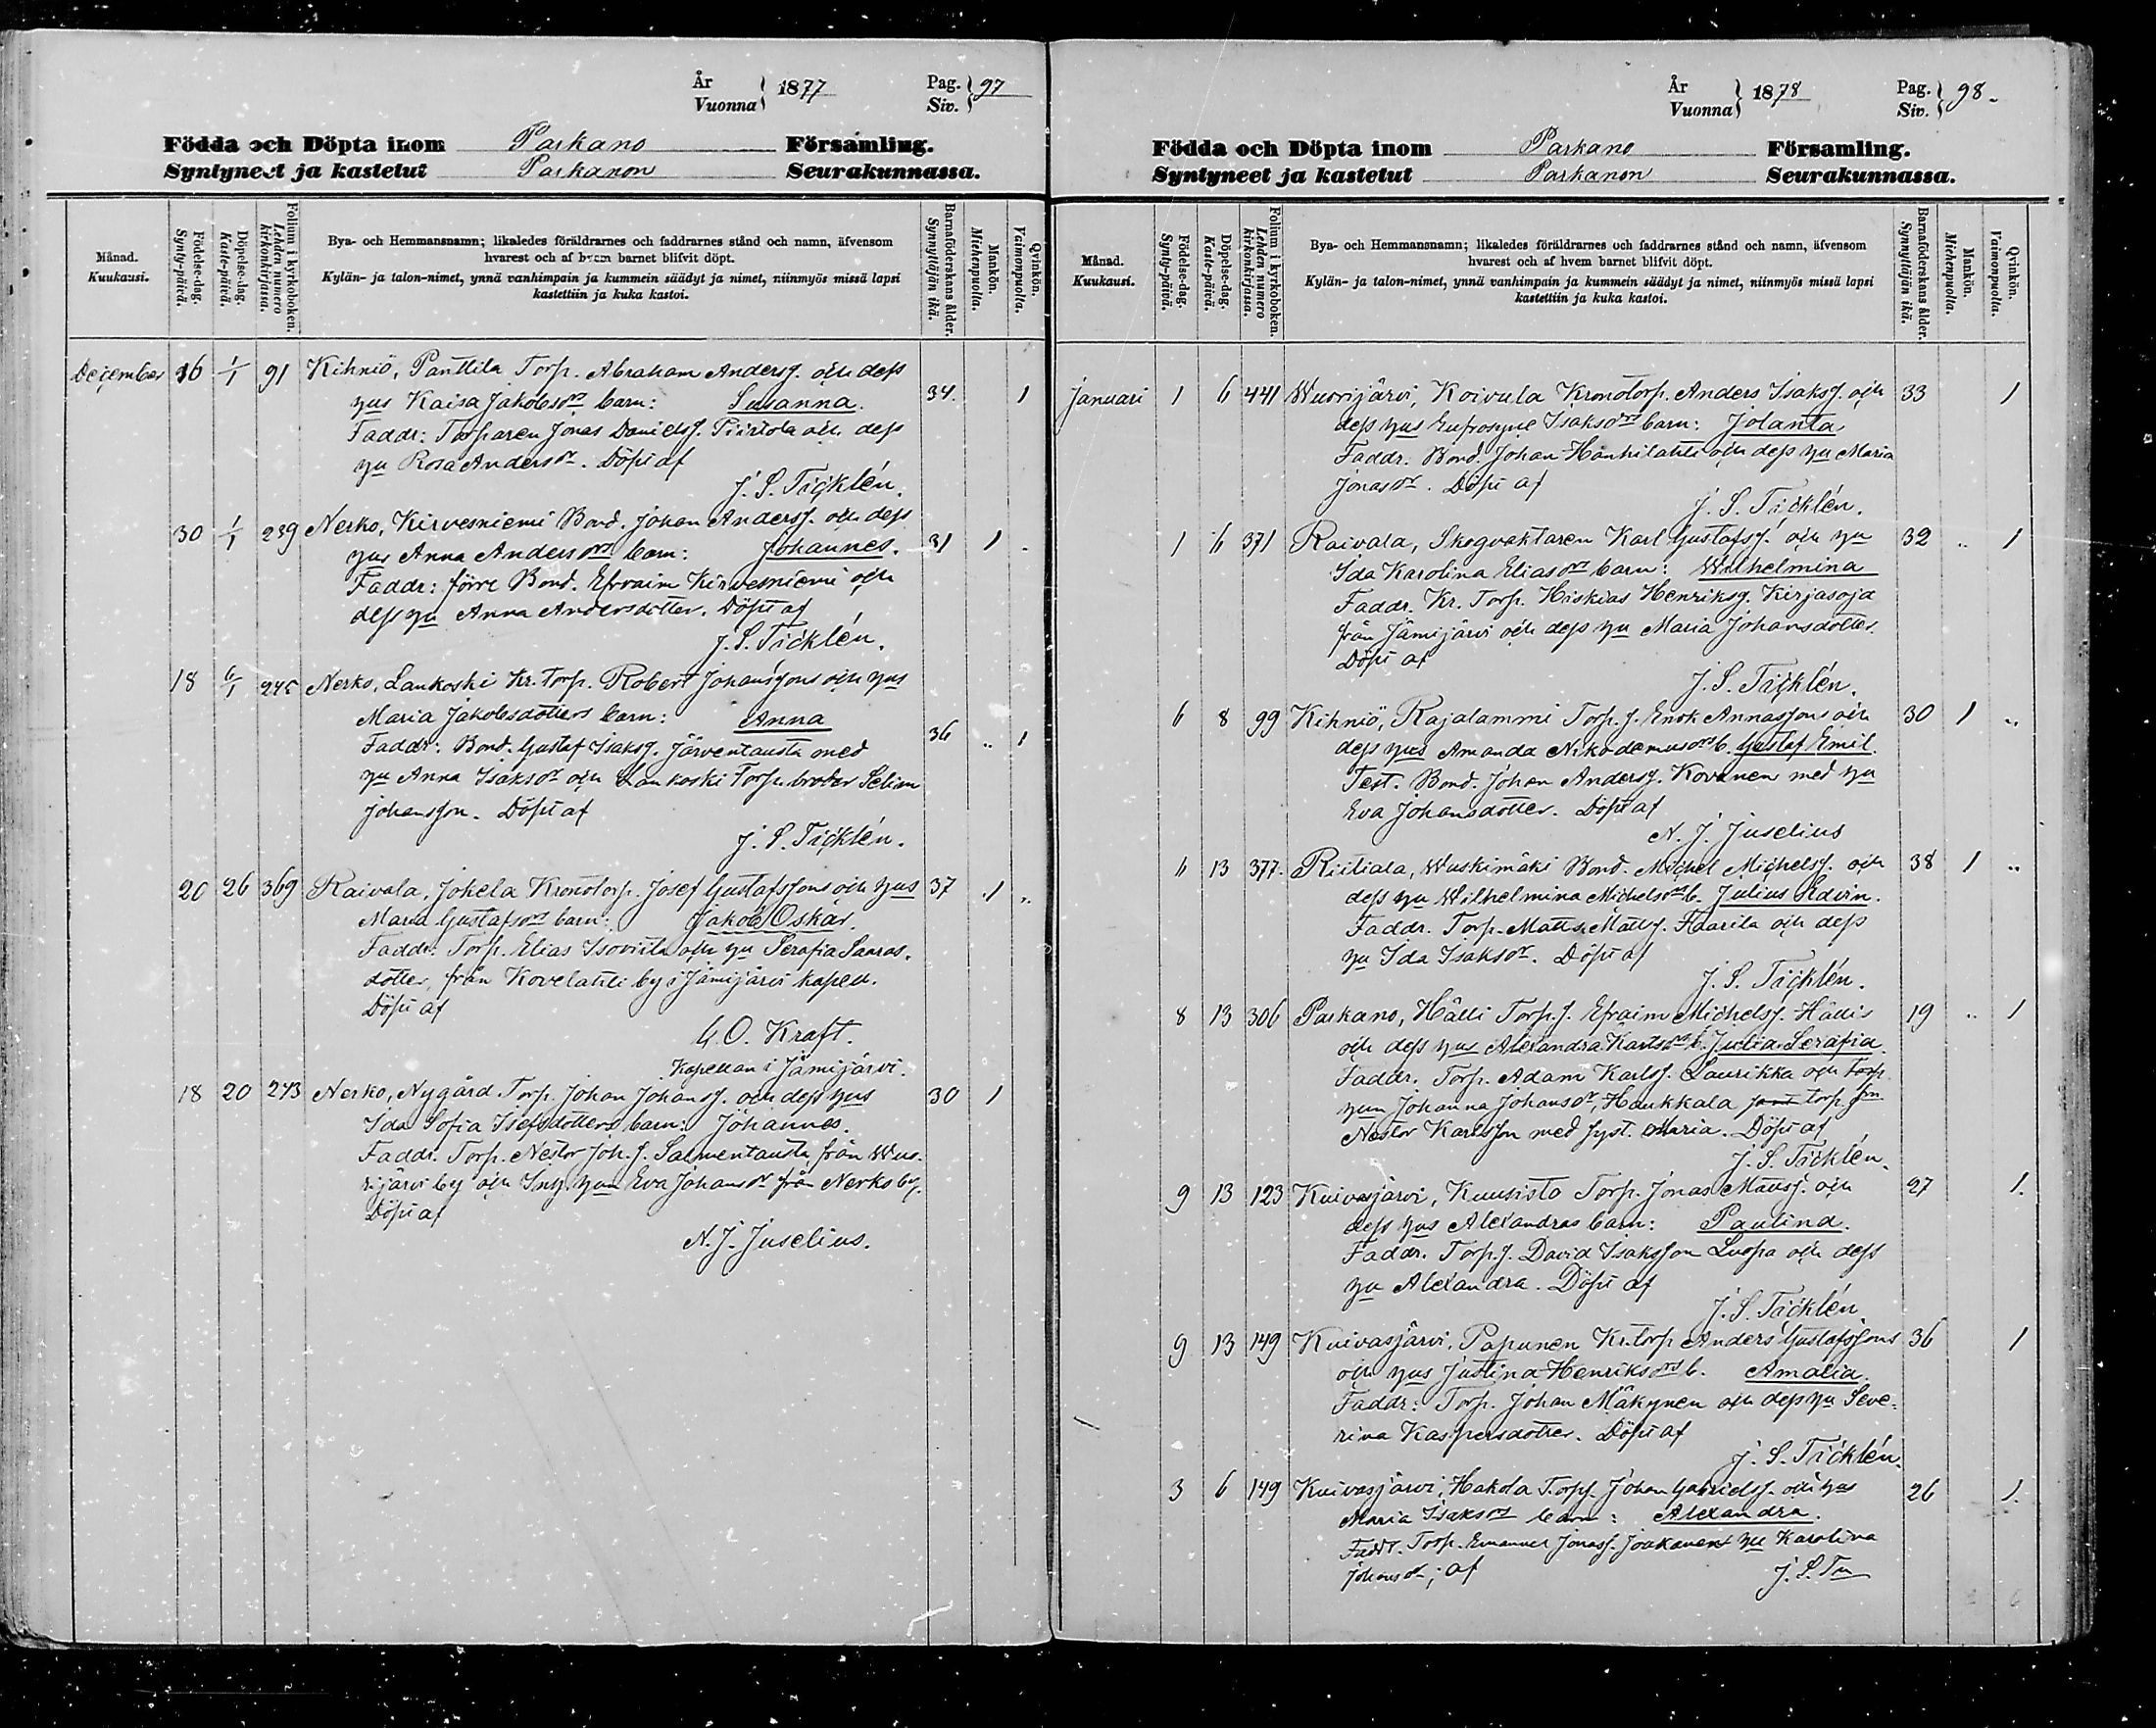 År
Vuonna } 1877
Pag.
Siv. } 97
Födda och Döpta inom Parkano Församling.
Syntyneet ja kastetut Parkanon Seurakunnassa.
Månad.
Kuukausi.
Födelse-dag.
Synty-päivä.
Döpelse-dag.
Kaste-päivä.
Folium i kyrkoboken.
Lehden numero
kirkonkirjassa.
Bya- och Hemmansnamn; likaledes föräldrarnes och faddrarnes stånd och namn, äfvensom
hvarest och af hvem barnet blifvit döpt.
Kylän- ja talon-nimet, ynnä vanhimpain ja kummein säädyt ja nimet, niinmyös missä lapsi
kastettiin ja kuka kastoi.
Barnaföderskans ålder.
Synnyttäjän ikä.
Mankön.
Miehenpuolta.
Qvinkön.
Vaimonpuolta.
December 16 1/1 91 Kihniö, Panttila Torp. Abraham Andersf. och dess 34. 1
hus Kaisa Jakobsdrs barn: Susanna.
Faddr: Torparen Jonas Danielsf. Tiirtola och dess
hu Rosa Andersdr. Döpt af
J. S. Ticklén.
30 1/1 239 Nerko, Kirvesniemi Bond. Johan Andersf. och dess 31 1
hus Anna Andersdrs barn: Johannes.
Faddr: förre Bond. Efraim Kirvesniemi och
dess hu Anna Andersdotter. Döpt af
J. S. Ticklén.
18 6/1 245 Nerko, Lankoski Kr. Torp. Robert Johanssons och hus 36 „ 1
Maria Jakobsdotters barn: Anna
Faddr: Bond. Gustaf Isaksf. Järventausta med
hu Anna Isaksdr och Lankoski Torp. broder Selim
Johansson. Döpt af
J. S. Ticklén.
20 26 369 Raivala, Jokela Kronotorp. Josef Gustafssons och hus 37 1 „
Maria Gustafsdrs barn: Jakob Oskar.
Faddr: Torp. Elias Isoviita och hu Serafia Saaras-
dotter, från Kovelahti by i Jämijärvi kapell.
Döpt af
G. O. Kraft.
Kapellan i Jämijärvi.
18 20 243 Nerko, Nygård Torp. Johan Johansf. och dess hus 30 1
Ida Sofia Isefsdotters barn: Johannes.
Faddr. Torp. Nestor Joh. f. Salmentausta från Wuo-
rijärvi by och Inh. hun Eva Johansdr från Nerko by.
Döpt af
N. J. Juselius.
År
Vuonna } 1878
Pag.
Siv. } 98.
Födda och Döpta inom Parkano Församling.
Syntyneet ja kastetut Parkanon Seurakunnassa.
Månad.
Kuukausi.
Födelse-dag.
Synty-päivä.
Döpelse-dag.
Kaste-päivä.
Folium i kyrkoboken.
Lehden numero
kirkonkirjassa.
Bya- och Hemmansnamn; likaledes föräldrarnes och faddrarnes stånd och namn, äfvensom
hvarest och af hvem barnet blifvit döpt.
Kylän- ja talon-nimet, ynnä vanhimpain ja kummein säädyt ja nimet, niinmyös missä lapsi
kastettiin ja kuka kastoi.
Barnaföderskans ålder.
Synnyttäjän ikä.
Mankön.
Miehenpuolta.
Qvinkön.
Vaimonpuolta.
Januari 1 6 441 Wuorijärvi, Koivula Kronotorp. Anders Isaksf. och 33 1
dess hus Eufrosyne Isaksdrs barn: Jolanta
Faddr. Bond. Johan Hanhilahti och dess hu Maria
Jonasdr. Döpt af
J. S. Ticklén.
1 6 371 Raivala, Skogvaktaren Karl Gustafsf. och hu 32 „ 1
Ida Karolina Eliasdrs barn: Wilhelmina
Faddr. Kr. Torp. Hiskias Henriksf. Kirjasoja
från Jämijärvi och dess hu Maria Johansdotter.
Döpt af
J. S. Ticklén.
6 8 99 Kihniö, Rajalammi Torp. f. Enok Annassons och 30 1 „
dess hus Amanda Nikodemusdrs b. Gustaf Emil.
Test. Bond. Johan Andersf. Kovanen med hu
Eva Johansdotter. Döpt af
N. J. Juselius
6 13 377. Riitiala, Wuskimäki Bond. Michel Michelsf. och 38 1 „
dess hu Wilhelmina Michelsdrs b. Julius Edvin.
Faddr. Torp. Matts Mattsf. Haarila och dess
hu Ida Isaksdr. Döpt af
J. S. Ticklén.
8 13 306 Parkano, Hälli Torp. f. Efraim Michelsf. Hällis 19 „ 1
och dess hus Alexandra Karlsdrs b. Julia Serafia.
Faddr. Torp. Adam Karlsf. Laurikka och torp.
hun Johanna Johansdr, Haukkala torp. fn
Nestor Karlsson med syst. Maria. Döpt af
J. S. Ticklén.
9 13 123 Kuivasjärvi, Kuusisto Torp. Jonas Mattsf. och 27 1.
dess hus Alexandras barn: Paulina.
Faddr. Torp. f. David Isaksson Luopa och dess
hu Alexandra. Döpt af
J. S. Ticklén
9 13 149 Kuivasjärvi, Papunen Kr. torp Anders Gustafssons 36 1
och hus Justina Henriksdrs b. Amalia.
Faddr: Torp. Johan Mäkynen och dess hu Seve-
rina Kaspersdotter. Döpt af
J. S. Ticklén.
3 6 149 Kuivasjärvi, Hakola Torp. Johan Gabrielsf. och hus 26 1.
Maria Isaksdrs barn: Alexandra.
Faddr. Torp. Emanuel Jonasf. hu Karolina
Johansdr; af J. S. Tn